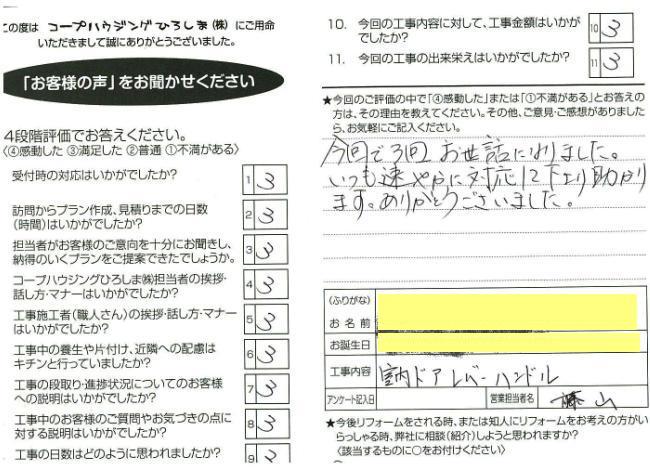 この度は コープハウジングひろしま(株) にご用命
いただきまして誠にありがとうございました。
「お客様の声」をお聞かせください
4段階評価でお答えください。
〈④感動した ③満足した ②普通 ①不満がある〉
受付時の対応はいかがでしたか?
1 3
訪問からプラン作成、見積りまでの日数
(時間)はいかがでしたか?
2 3
担当者がお客様のご意向を十分にお聞きし、
納得のいくプランをご提案できたでしょうか。
3 3
コープハウジングひろしま㈱担当者の挨拶・
話し方・マナーはいかがでしたか?
4 3
工事施工者(職人さん)の挨拶・話し方・マナー
はいかがでしたか?
5 3
工事中の養生や片付け、近隣への配慮は
キチンと行っていましたか?
6 3
工事の段取り・進捗状況についてのお客様
への説明はいかがでしたか?
7 3
工事中のお客様のご質問やお気づきの点に
対する説明はいかがでしたか?
8 3
工事の日数はどのように思われましたか?
9 3
10. 今回の工事内容に対して、工事金額はいかが
でしたか?
10 3
11. 今回の工事の出来栄えはいかがでしたか?
11 3
★今回のご評価の中で「④感動した」または「①不満がある」とお答えの
方は、その理由を教えてください。その他、ご意見・ご感想がありました
ら、お気軽にご記入ください。
今回で3回 お世話になりました。
いつも速やかに対応して下さり助かり
ます。ありがとうございました。
(ふりがな)
お名前
お誕生日
工事内容 室内ドアレバーハンドル
アンケート記入日 営業担当者名 藤山
★今後リフォームをされる時、または知人にリフォームをお考えの方がい
らっしゃる時、弊社に相談(紹介)しようと思われますか?
〈該当するものに○をお付けください〉